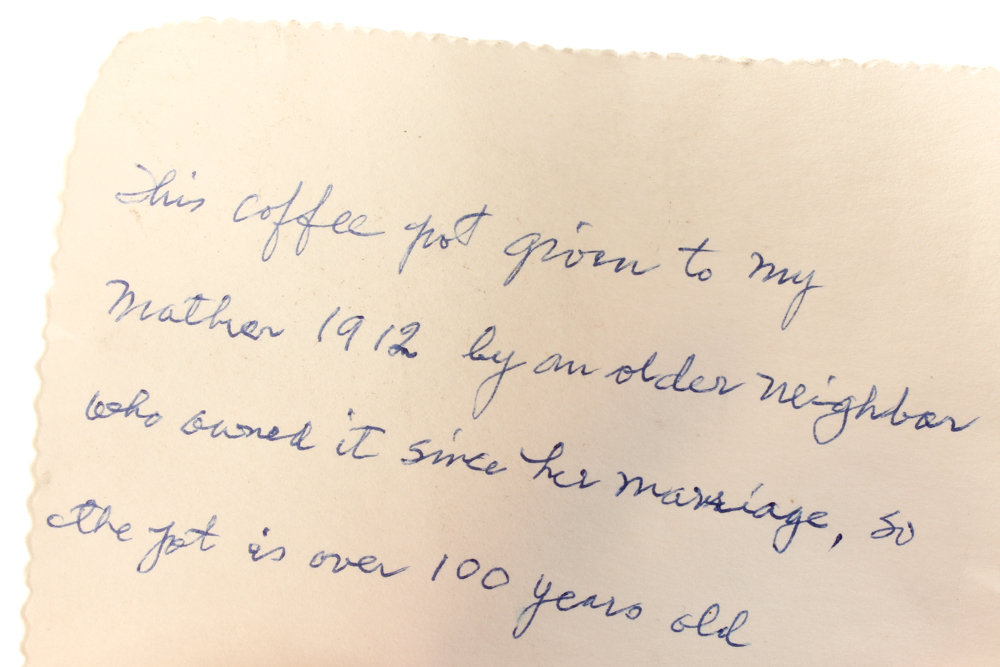 This coffee pot given to my
Mother 1912 by an older neighbor
who owned it since her marriage, so
the pot is over 100 years old